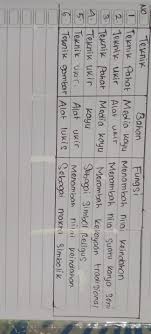 NO Teknik Bahan Fungsi
1 Teknik Pahat Media kayu Menambah nilai keindahan
2 Teknik ukir Alat ukir Menambah nilai suatu karya seni
3 Teknik Pahat Media kayu Menambah kekayaan
4 Teknik ukir kayu Sebagai simbol religius
5 Teknik ukir Alat ukir Menambah nilai keindahan
6 Teknik gambar Alat lukis Sebagai makna simbolik